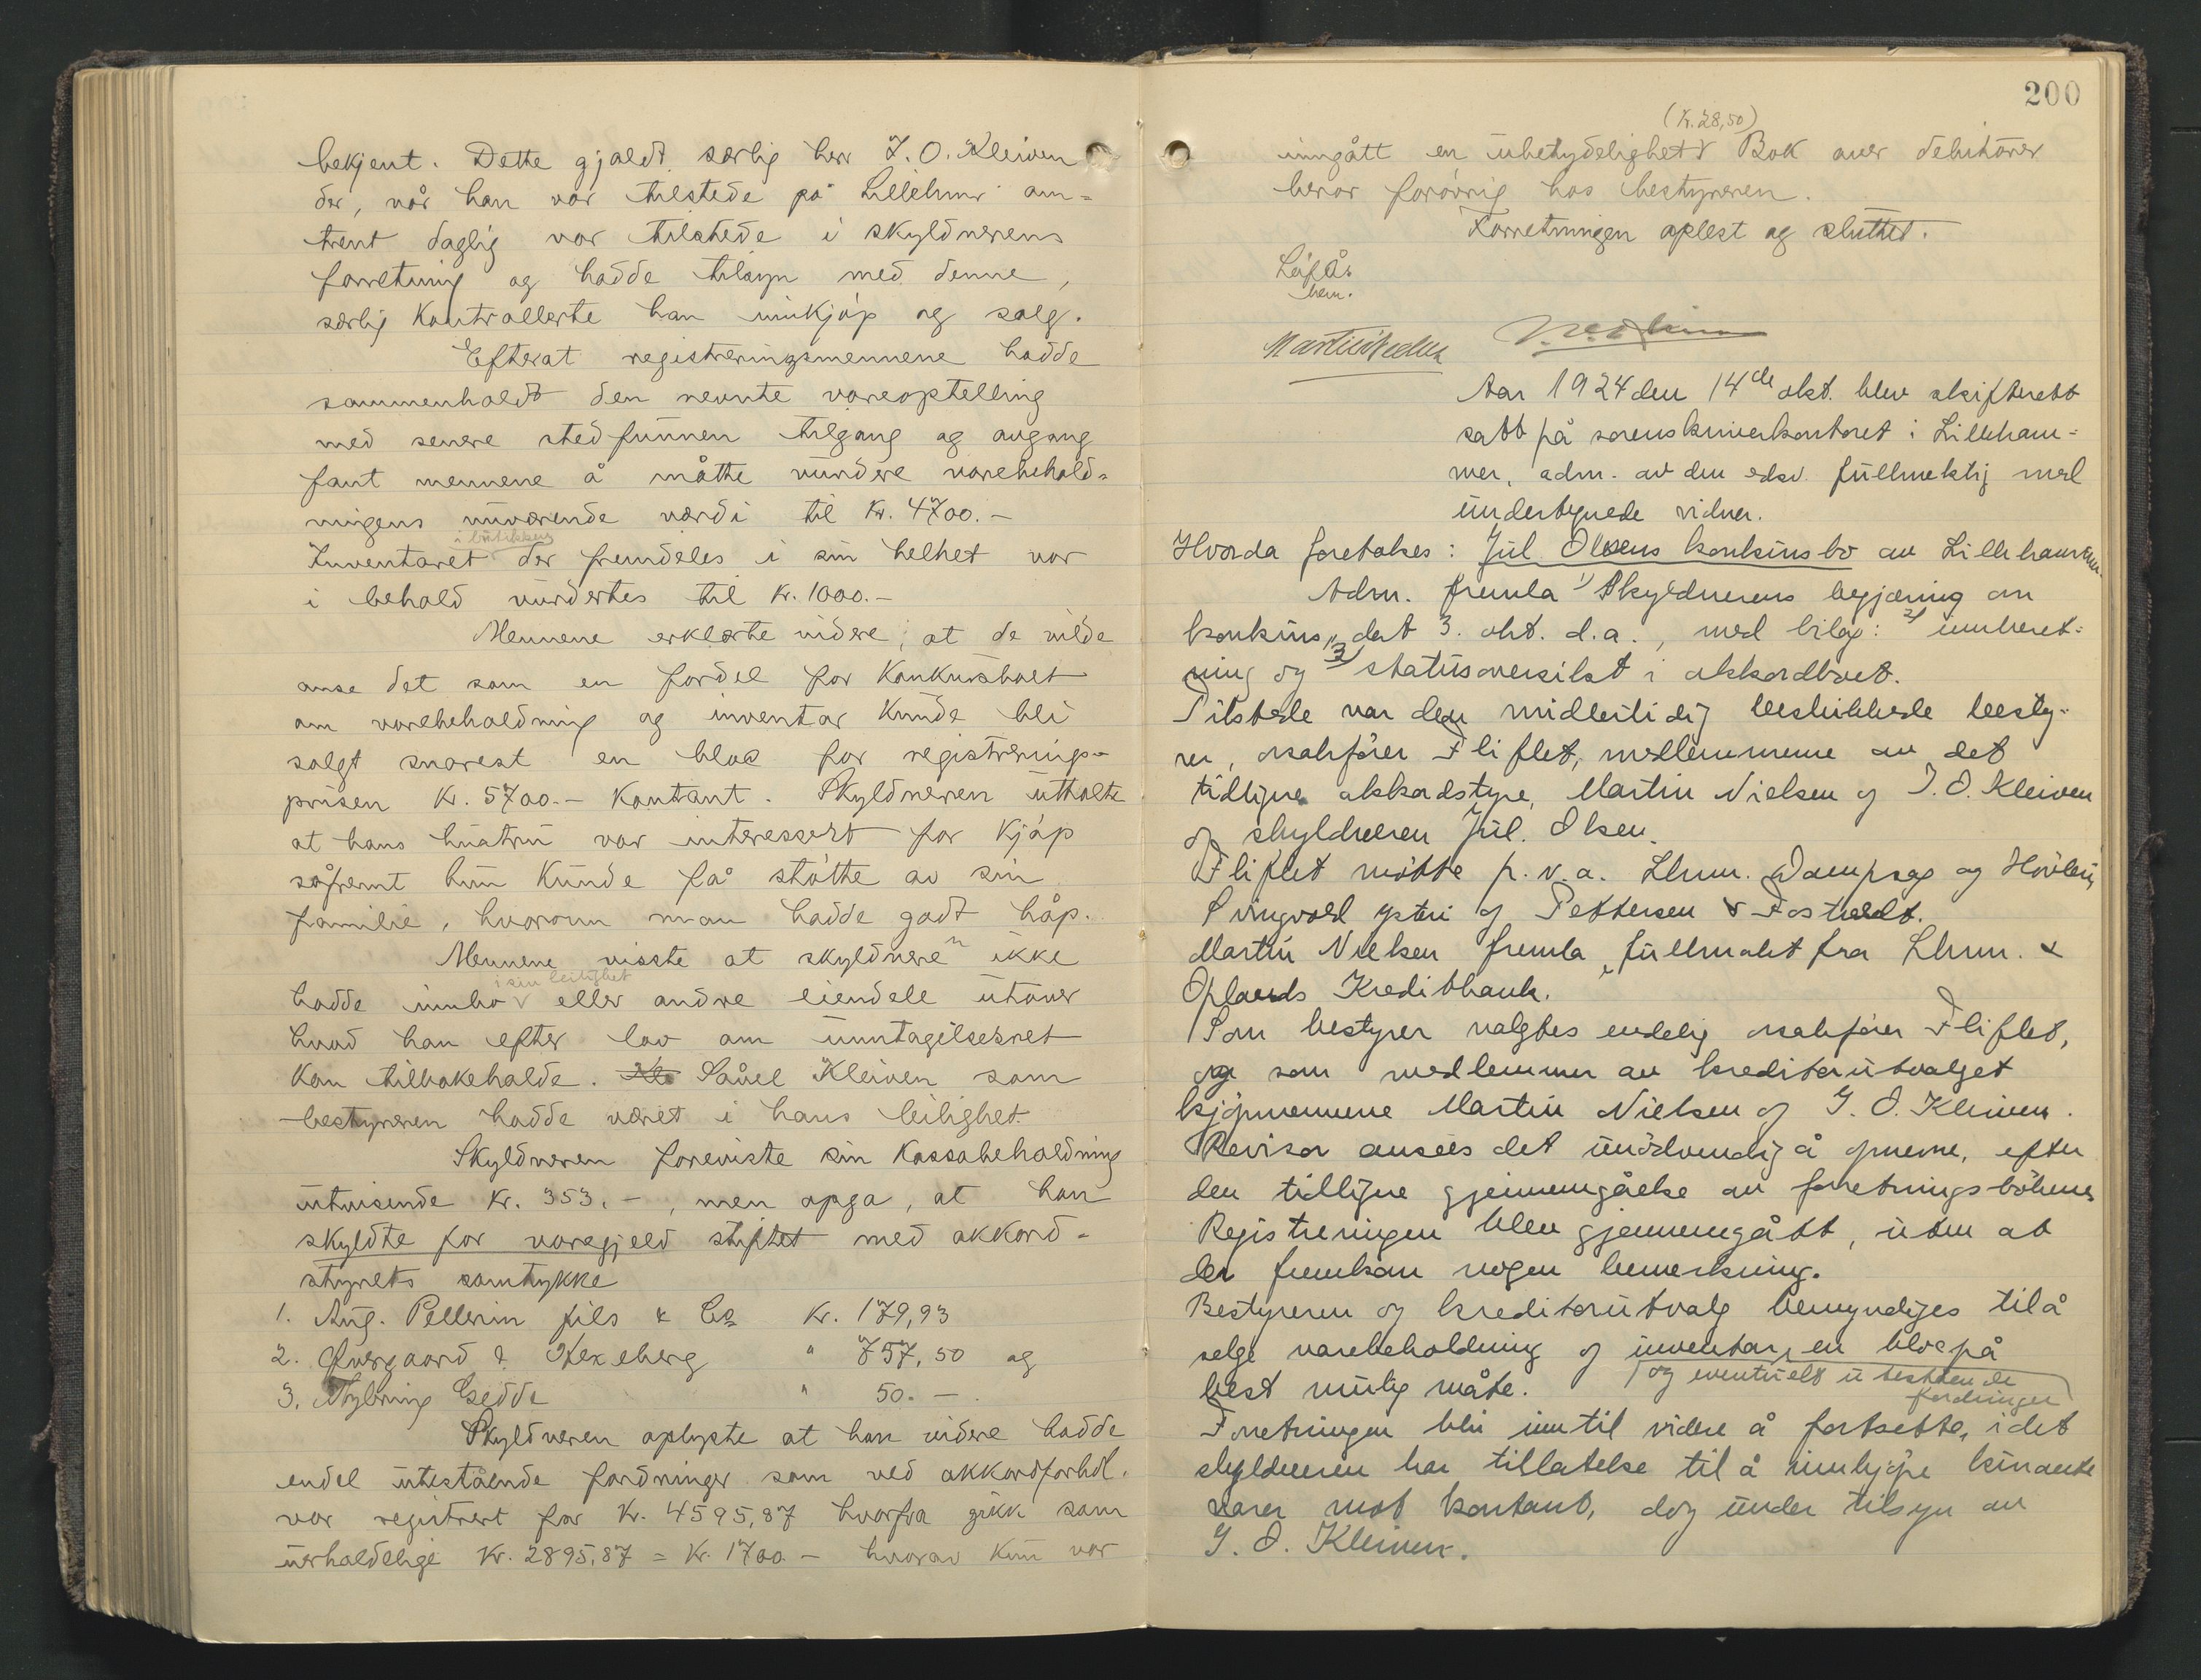 bekjent. Dette gjaldt særlig herr J. O. Kleiven
der, når han var tilstede på Lillehmr om-
trent daglig var tilstede i skyldnerens
forretning og hadde tilsyn med denne,
særlig kontrollerte han innkjøp og salg.
Efterat registreringsmennene hadde
sammenholdt den nevnte vareoptelling
med senere stedfunnen tilgang og avgang
fant mennene å måtte vurdere varebehold-
ningens nuværende værdi til kr. 4700.-
i butikken
Inventaret der fremdeles i sin helhet var
i behold vurdertes til kr. 1000.-
Mennene erklærte videre, at de vilde
anse det som en fordel for konkursboet
om varebeholdning og inventar kunde bli
solgt snarest en bloc for registrerings-
prisen kr. 5700.- kontant. Skyldneren uttalte
at hans hustru var interessert for kjøp
såfremt hun kunde få støtte av sin
familie, hvorom man hadde godt håp.
Mennene visste at skyldneren ikke
i sin leilighet
hadde innbo eller andre eiendele utover
hvad han efter lov om unntagelsesret
kan tilbakeholde. Såvel Kleiven som
bestyreren hadde været i hans leilighet.
Skyldneren foreviste sin kassabeholdning
utvisende kr. 353.-, men opga, at han
skyldte for varegjeld stiftet med akkord-
styrets samtykke
1. Aug. Pellerin fils & Co kr. 179,93
2. Øvergaard & Hexeberg " 757,50 og
3. Gedde " 50.-
Skyldneren oplyste at han videre hadde
endel utestående fordringer som ved akkordforhdl.
var registrert for kr. 4595,87 hvorfra gikk som
uerholdelige kr. 2895,87 = kr. 1700.- hvorav kun var
200
(kr. 28,50)
inngått en ubetydelighet. Bok over debitorer
beror forøvrig hos bestyreren.
Forretningen oplest og sluttet.
Martin Nielsen
Aar 1924 den 14de okt. blev skifterett
satt på sorenskriverkontoret i Lilleham-
mer, adm. av den edsv. fullmektig med
undertegnede vidner.
Hvorda foretokes: Jul. Olsens konkursbo av Lillehammer.
Adm. fremla 1) Skyldnerens begjæring om
konkurs, dat 3. okt. d.a., med bilag: 2) innberet-
ning og 3) statusoversikt i akkordboet.
Tilstede var den midlertidig beskikkede besty-
rer, o.sakfører Fliflet, medlemmene av det
tidligere akkordstyre, Martin Nielsen og J. O. Kleiven
og skyldneren Jul. Olsen.
Fliflet møtte p. v. a. Lhmr. Dampsag og Høvleri,
Svingvold ysteri og Pettersen & Fostvedt.
Martin Nielsen fremla fullmakt fra Lhmr. &
Oplands Kreditbank.
Som bestyrer valgtes endelig o.sakfører Fliflet,
og som medlemmer av kreditorutvalget
kjøpmennene Martin Nielsen og J. O. Kleiven.
Revisor ansees det unødvendig å opnevne, efter
den tidligere gjennemgåelse av forretningsbökene
Registreringen blev gjennemgått, uten at
der fremkom nogen bemerkning.
Bestyreren og kreditorutvalg bemyndiges til å
selge varebeholdning og inventar, en bloc på
og eventuelt utestående
fordringer
best mulig måte.
Forretningen blir inntil videre å fortsette, idet
skyldneren har tillatelse til å innkjøpe kurante
varer mot kontant, dog under tilsyn av
J. O. Kleiven.